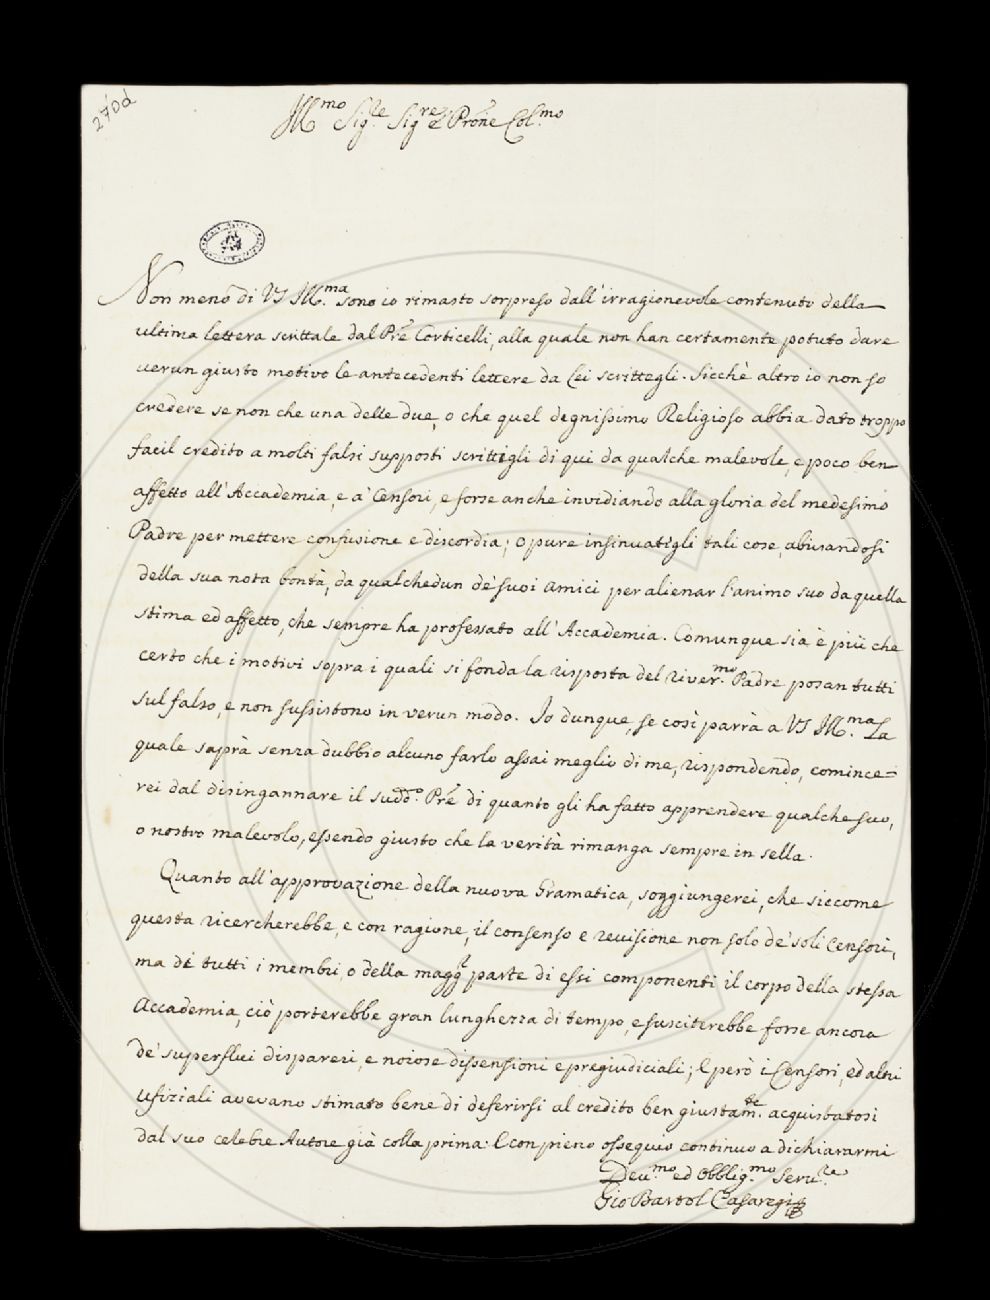 270d
Ill.mo Sig.re Sig.re e Prõne Col.mo
Non meno di VS Ill.ma sono io rimasto sorpreso dall'irragionevole contenuto della
ultima lettera scrittale dal Prẽ Corticelli, alla quale non han certamente potuto dare
verun giusto motivo le antecedenti lettere da Lei scrittegli. Sicchè altro io non so
credere se non che una delle due, o che quel degnissimo Religioso abbia dato troppo
facil credito a molti falsi supposti scrittigli di qui da qualche malevole, e poco ben
affetto all'Accademia, e a' Censori, e forse anche invidiando alla gloria del medesimo
Padre per mettere confusione e discordia; o pure insinuatigli tali cose, abusandosi
della sua nota bontà, da qualchedun de' suoi amici per alienar l'animo suo da quella
stima ed affetto, che sempre ha professato all'Accademia. Comunque sia è più che
certo che i motivi sopra i quali si fonda la risposta del River.mo Padre posan tutti
sul falso, e non sussistono in verun modo. Io dunque, se così parrà a VS Ill.ma La
quale saprà senza dubbio alcuno farlo assai meglio di me, rispondendo, comince=
rei dal disingannare il sudd.o Prẽ di quanto gli ha fatto apprendere qualche suo,
o nostro malevolo, essendo giusto che la verità rimanga sempre in sella.
Quanto all'approvazione della nuova Gramatica, soggiungerei, che siccome
questa ricercherebbe, e con ragione, il consenso e revisione non solo de' soli Censori,
ma di tutti i membri, o della magg.r parte di essi componenti il corpo della stessa
Accademia, ciò porterebbe gran lunghezza di tempo, e susciterebbe forse ancora
de' superflui dispareri, e noiose dissensioni e pregiudiciali; E però i Censori, ed altri
Ufiziali avevano stimato bene di deferirsi al credito ben giustam.te acquistatosi
dal suo celebre Autore già colla prima: E con pieno ossequio continuo a dichiararmi
Deu.mo ed Obblig.mo Seru.re
Gio Bartol Casaregi